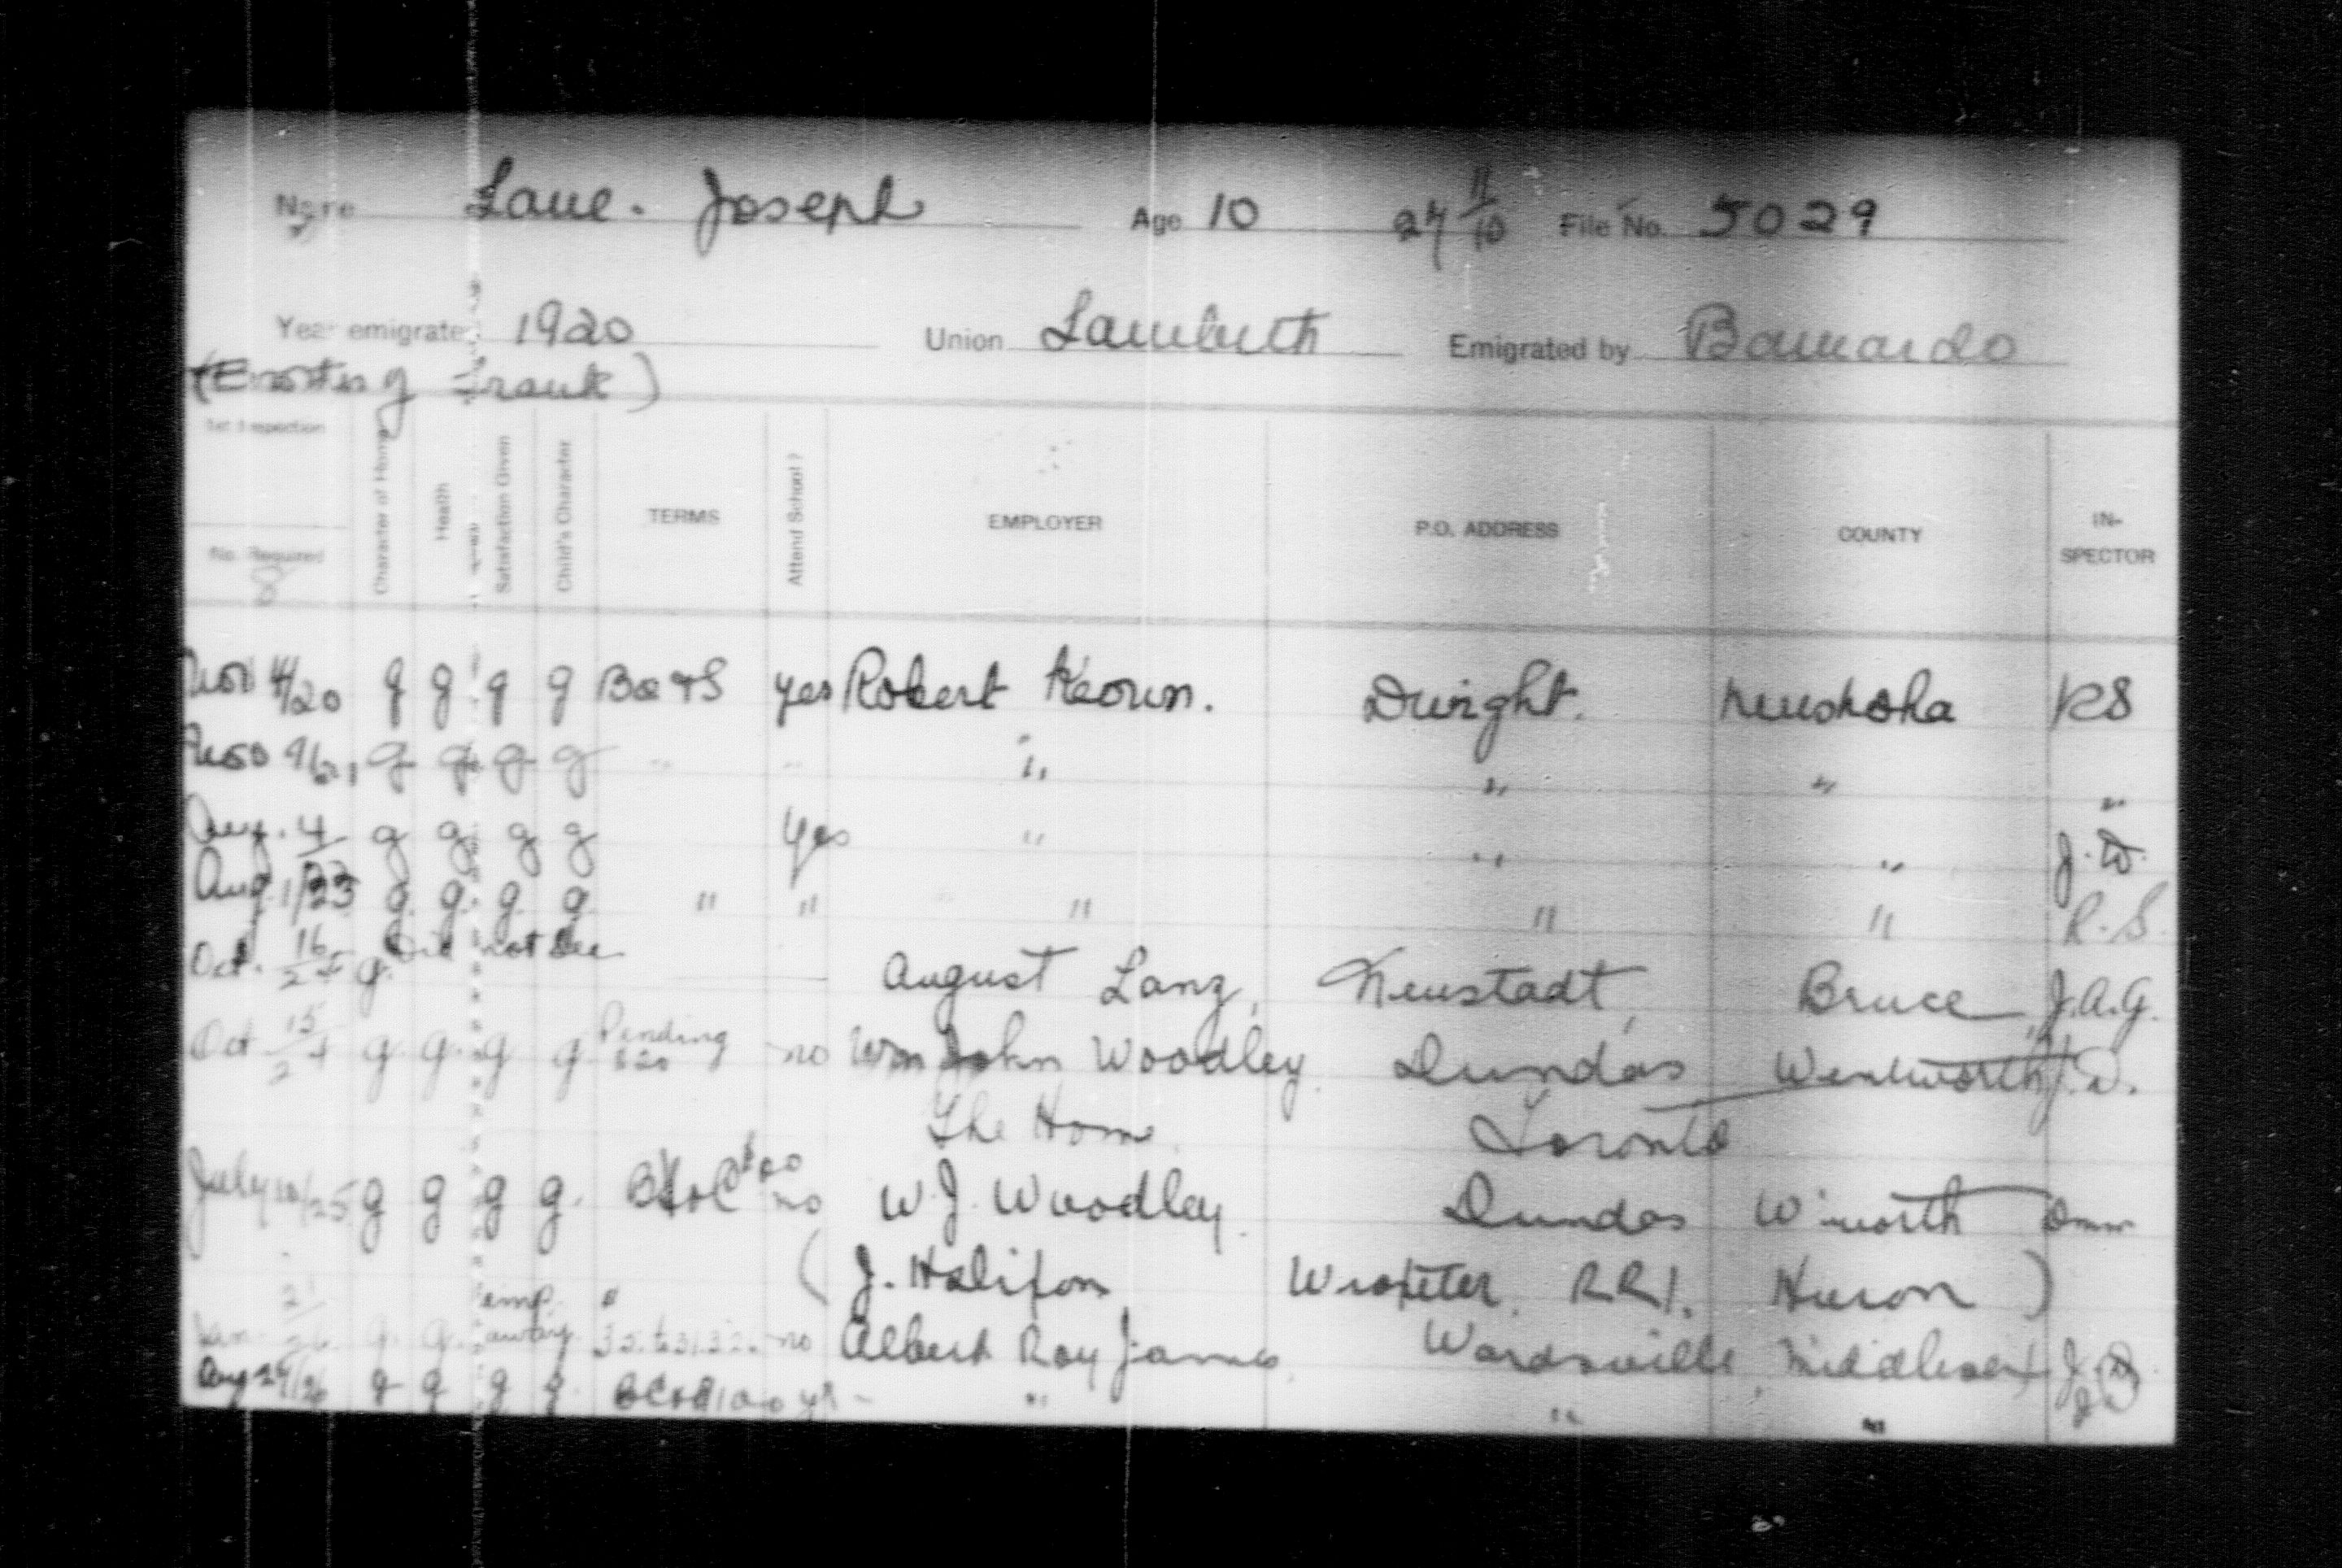 Name Lane. Joseph Age 10 27 11/10 File No. 5029
Year emigrated 1920 Union Lambeth Emigrated by Barnardo
Frank)
1st Inspection
No. Required
8
Character of Home
Health
Satisfaction Given
Child's Character
TERMS
Attend School?
EMPLOYER
P.O. ADDRESS
COUNTY
IN-
SPECTOR
Nov 4/20 g g g g B&S yes Robert Keown. Dwight. Muskoka RS
Nov 9/21 g g g g " " " " " "
Aug. 4/22 g g g g Yes " " " J.W.
Aug 1/23 g g g g " " " " " R.S.
Oct. 16/24 g. Did not see August Lanz, Neustadt, Bruce J.A.G.
Oct 15/24 g g g g Pending no Wm John Woodley Dundas Wentworth
The Home Toronto
July /25 g g g g. no W.J. Woodley Dundas W'worth
( J. Halifon Wroxeter, RR1. Huron )
Jan. 21/26 g. g. away. " no Albert Roy James Wardsville, Middlesex J.
Aug 24/26 g g g g " " "